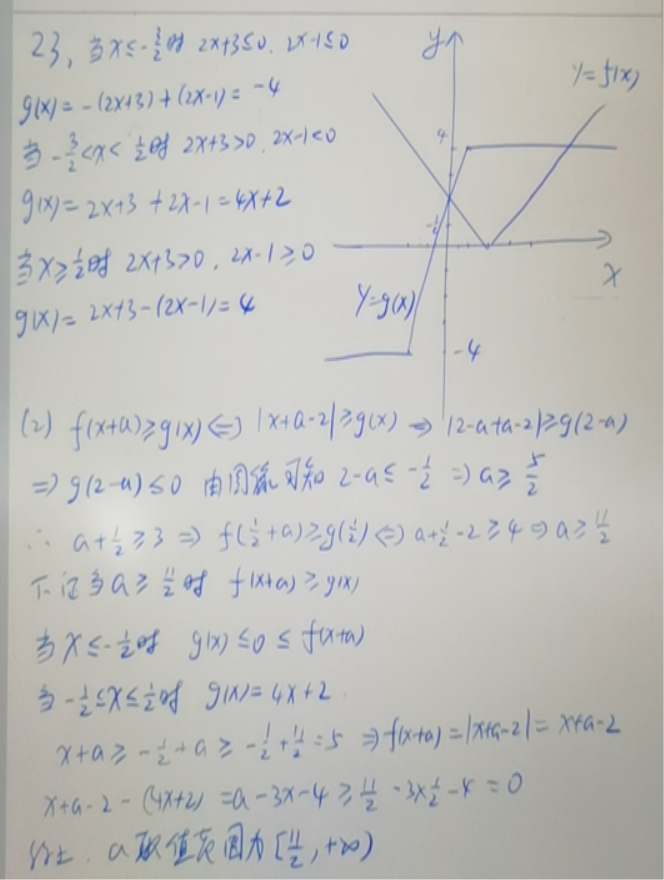 23, 当x≤-3/2时 2x+3≤0. 2x-1≤0
g(x)= -(2x+3)+(2x-1)= -4
当-3/2<x<1/2时 2x+3>0. 2x-1<0
g(x)= 2x+3+2x-1=4x+2
当x≥1/2时 2x+3>0. 2x-1≥0
g(x)= 2x+3-(2x-1)=4
y
y=f(x)
4
-1/2
x
y=g(x)
-4
(2) f(x+a)≥g(x)⇔|x+a-2|≥g(x) ⇒ |2-a+a-2|≥g(2-a)
⇒ g(2-a)≤0 由图象可知 2-a≤-1/2 ⇒a≥5/2
∴ a+1/2≥3 ⇒ f(1/2+a)≥g(1/2)⇔a+1/2-2≥4⇒a≥11/2
下证当a≥11/2时 f(x+a)≥g(x)
当x≤-1/2时 g(x)≤0≤f(x+a)
当-1/2≤x≤1/2时 g(x)=4x+2.
x+a≥-1/2+a≥-1/2+11/2=5 ⇒f(x+a)=|x+a-2|=x+a-2
x+a-2-(4x+2)=a-3x-4≥11/2-3x1/2-4=0
综上. a取值范围为[11/2,+∞)